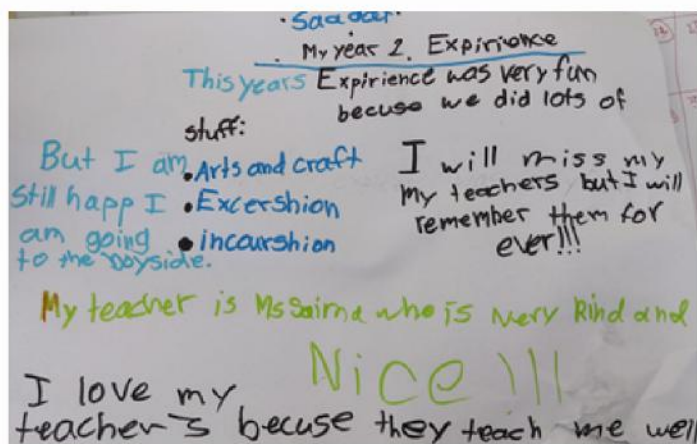 Saadat
. My year 2. Expirience
This years Expirience was very fun
becuse we did lots of
stuff:
• Arts and craft
• Excershion
• incurshion
But I am
Still happ I
am going
to the boyside.
I will miss my
my teachers but I will
remember them for
ever!!!
My teacher is Ms Saima who is very kind and
Nice!!!
I love my
teacher's becuse they teach me well